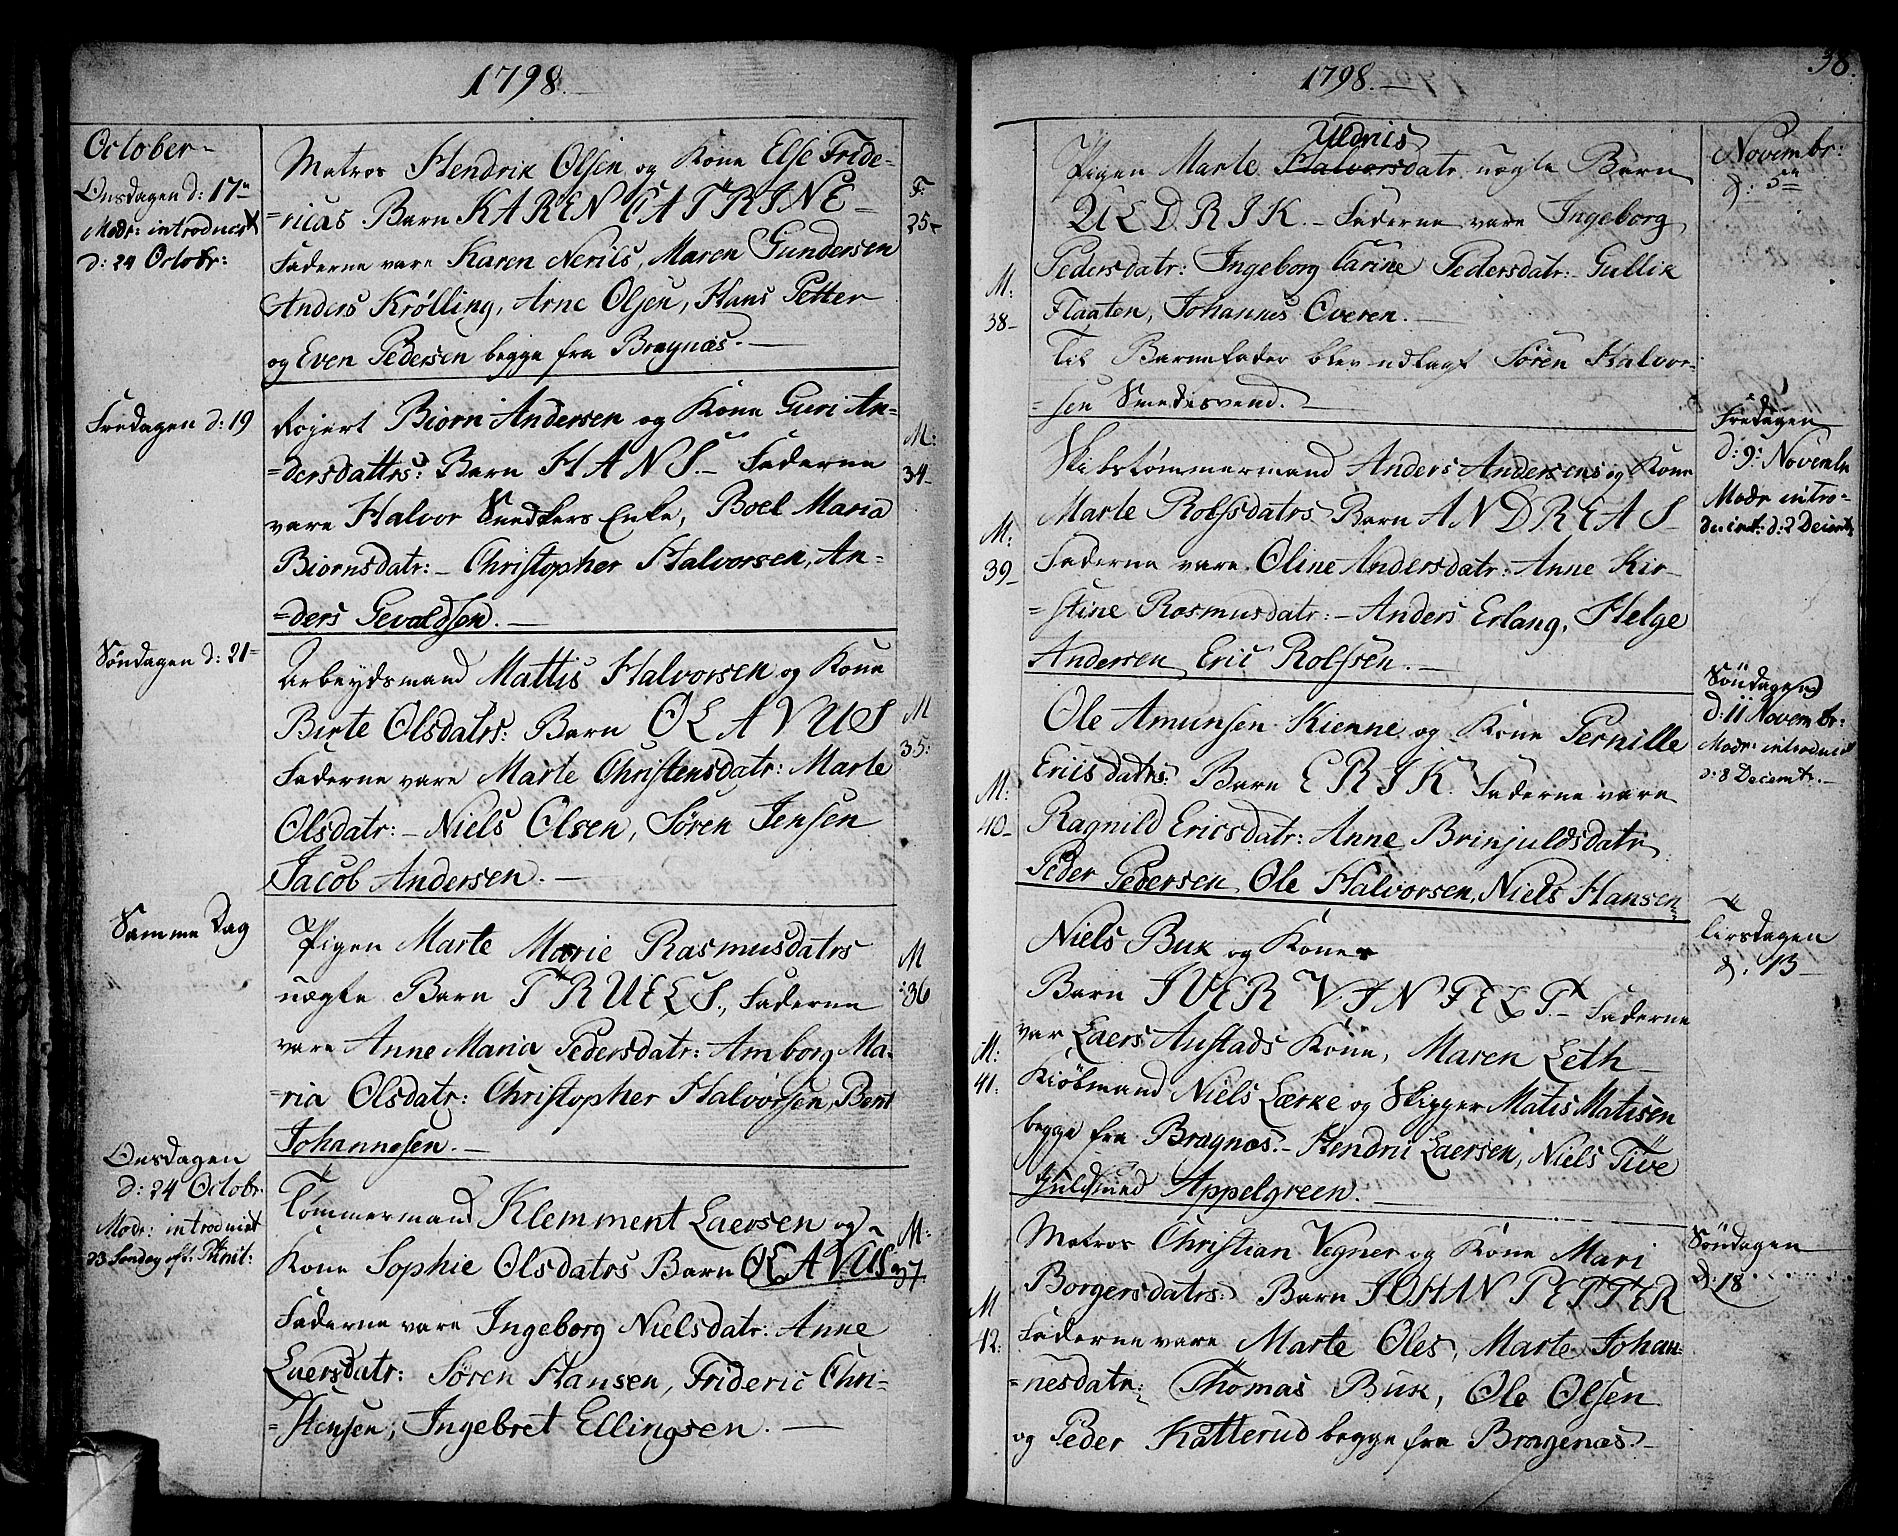 1798.
October
Onsdagen d: 17
Modr: introducert
d: 24 Octobr:
Matros Hendrik Olsen og Kone Else Fride-
=ricas Barn KAREN CATRINE
Faderne vare Karen Nerils, Maren Gundersen
Anders Krølling, Arne Olsen, Hans Petter
og Even Pedersen begge fra Bragnæs.
F.
25
Fredagen d: 19
Rojert Biørn Andersen og Kone Guri An-
=dersdattrs: Barn HANS. Faderne
vare Halvor Snedkers Enke, Boel Maria
Biørnsdatr: Christopher Halvorsen, An-
=ders Gevaldsen.
M:
34
Søndagen d: 21
Arbeydsmand Mattis Halvorsen og Kone
Birte Olsdatrs: Barn OLAVUS
Faderne vare Marte Christensdatr: Marte
Olsdatr: Niels Olsen, Søren Jensen
Jacob Andersen.
M
35:
Samme Dag
Pigen Marte Marie Rasmusdatrs
uægte Barn TRUELS., Faderne
vare Anne Maria Pedersdatr: Amborg Ma-
=ria Olsdatr: Christopher Halvorsen, Bent
Johannesen.
M
:36
Onsdagen
d: 24 Octobr.
Modr: introduciet
23 Søndag eft. Trinit:
Tømmermand Klemment Laersen og
Kone Sophie Olsdatrs Barn OLAVUS
Faderne vare Ingeborg Nielsdatr: Anne
Laersdatr: Søren Hansen, Frideric Chri-
=stensen, Ingebret Ellingsen.
M:
37
1798.
38.
Novembr:
d: 5
Uldnis
Pigen Marte Halvorsdatr uægte Barn
ULDRIK. Faderne vare Ingeborg
Pedersdatr: Ingeborg Carine Pedersdatr: Gullik
Flaaten, Johannes Overen.
Til Barnefader blev udlagt Søren Halvor-
=sen Smedisvend.
M:
38
Fredagen
d: 9: Novembr
Modr intro-
ducirt: d: 2 Decembr
Skibstømmermand Anders Andersens og Kone
Marte Rolfsdatrs Barn ANDREAS
Faderne vare Oline Andersdatr: Anne Kir-
=stine Rasmusdatr: Anders Erlang, Helge
Andersen, Eric Rolfsen.
M:
39
Søndagen
d: 11 Novembr:
Modr: introduciet
d: 8 Decembr.
Ole Amunsen Kienne og Kone Pernille
Ericsdatrs: Barn ERIK. Faderne vare
Ragnild Ericsdatr: Anne Brinjuldsdatr
Peder Pedersen, Ole Halvorsen, Niels Hansen
M:
40
Tirsdagen
d. 13
Niels Buk og Kones
Barn IVER VINFELT. Faderne
var Laers Austads Kone, Maren Leth
Kiøbmand Niels Lærke og Skipper Matis Matisen
begge fra Bragnæs. Hendric Laersen, Niels Tive
Guldsmed Appelgreen.
M:
41.
Søndagen
d: 18
Matros Christian Vegner og Kone Mari
Borgersdatrs: Barn JOHAN PETTER
Faderne vare Marte Oles, Marte Johan-
=nesdatr: Thomas Buk, Ole Olsen
og Peder Katterud begge fra Bragenæs.
M
42.